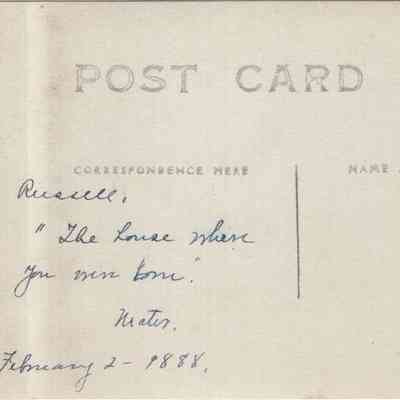 POST CARD
CORRESPONDENCE HERE
NAME
Russell,
"The house where
You were born".
Mater.
February 2 - 1888.